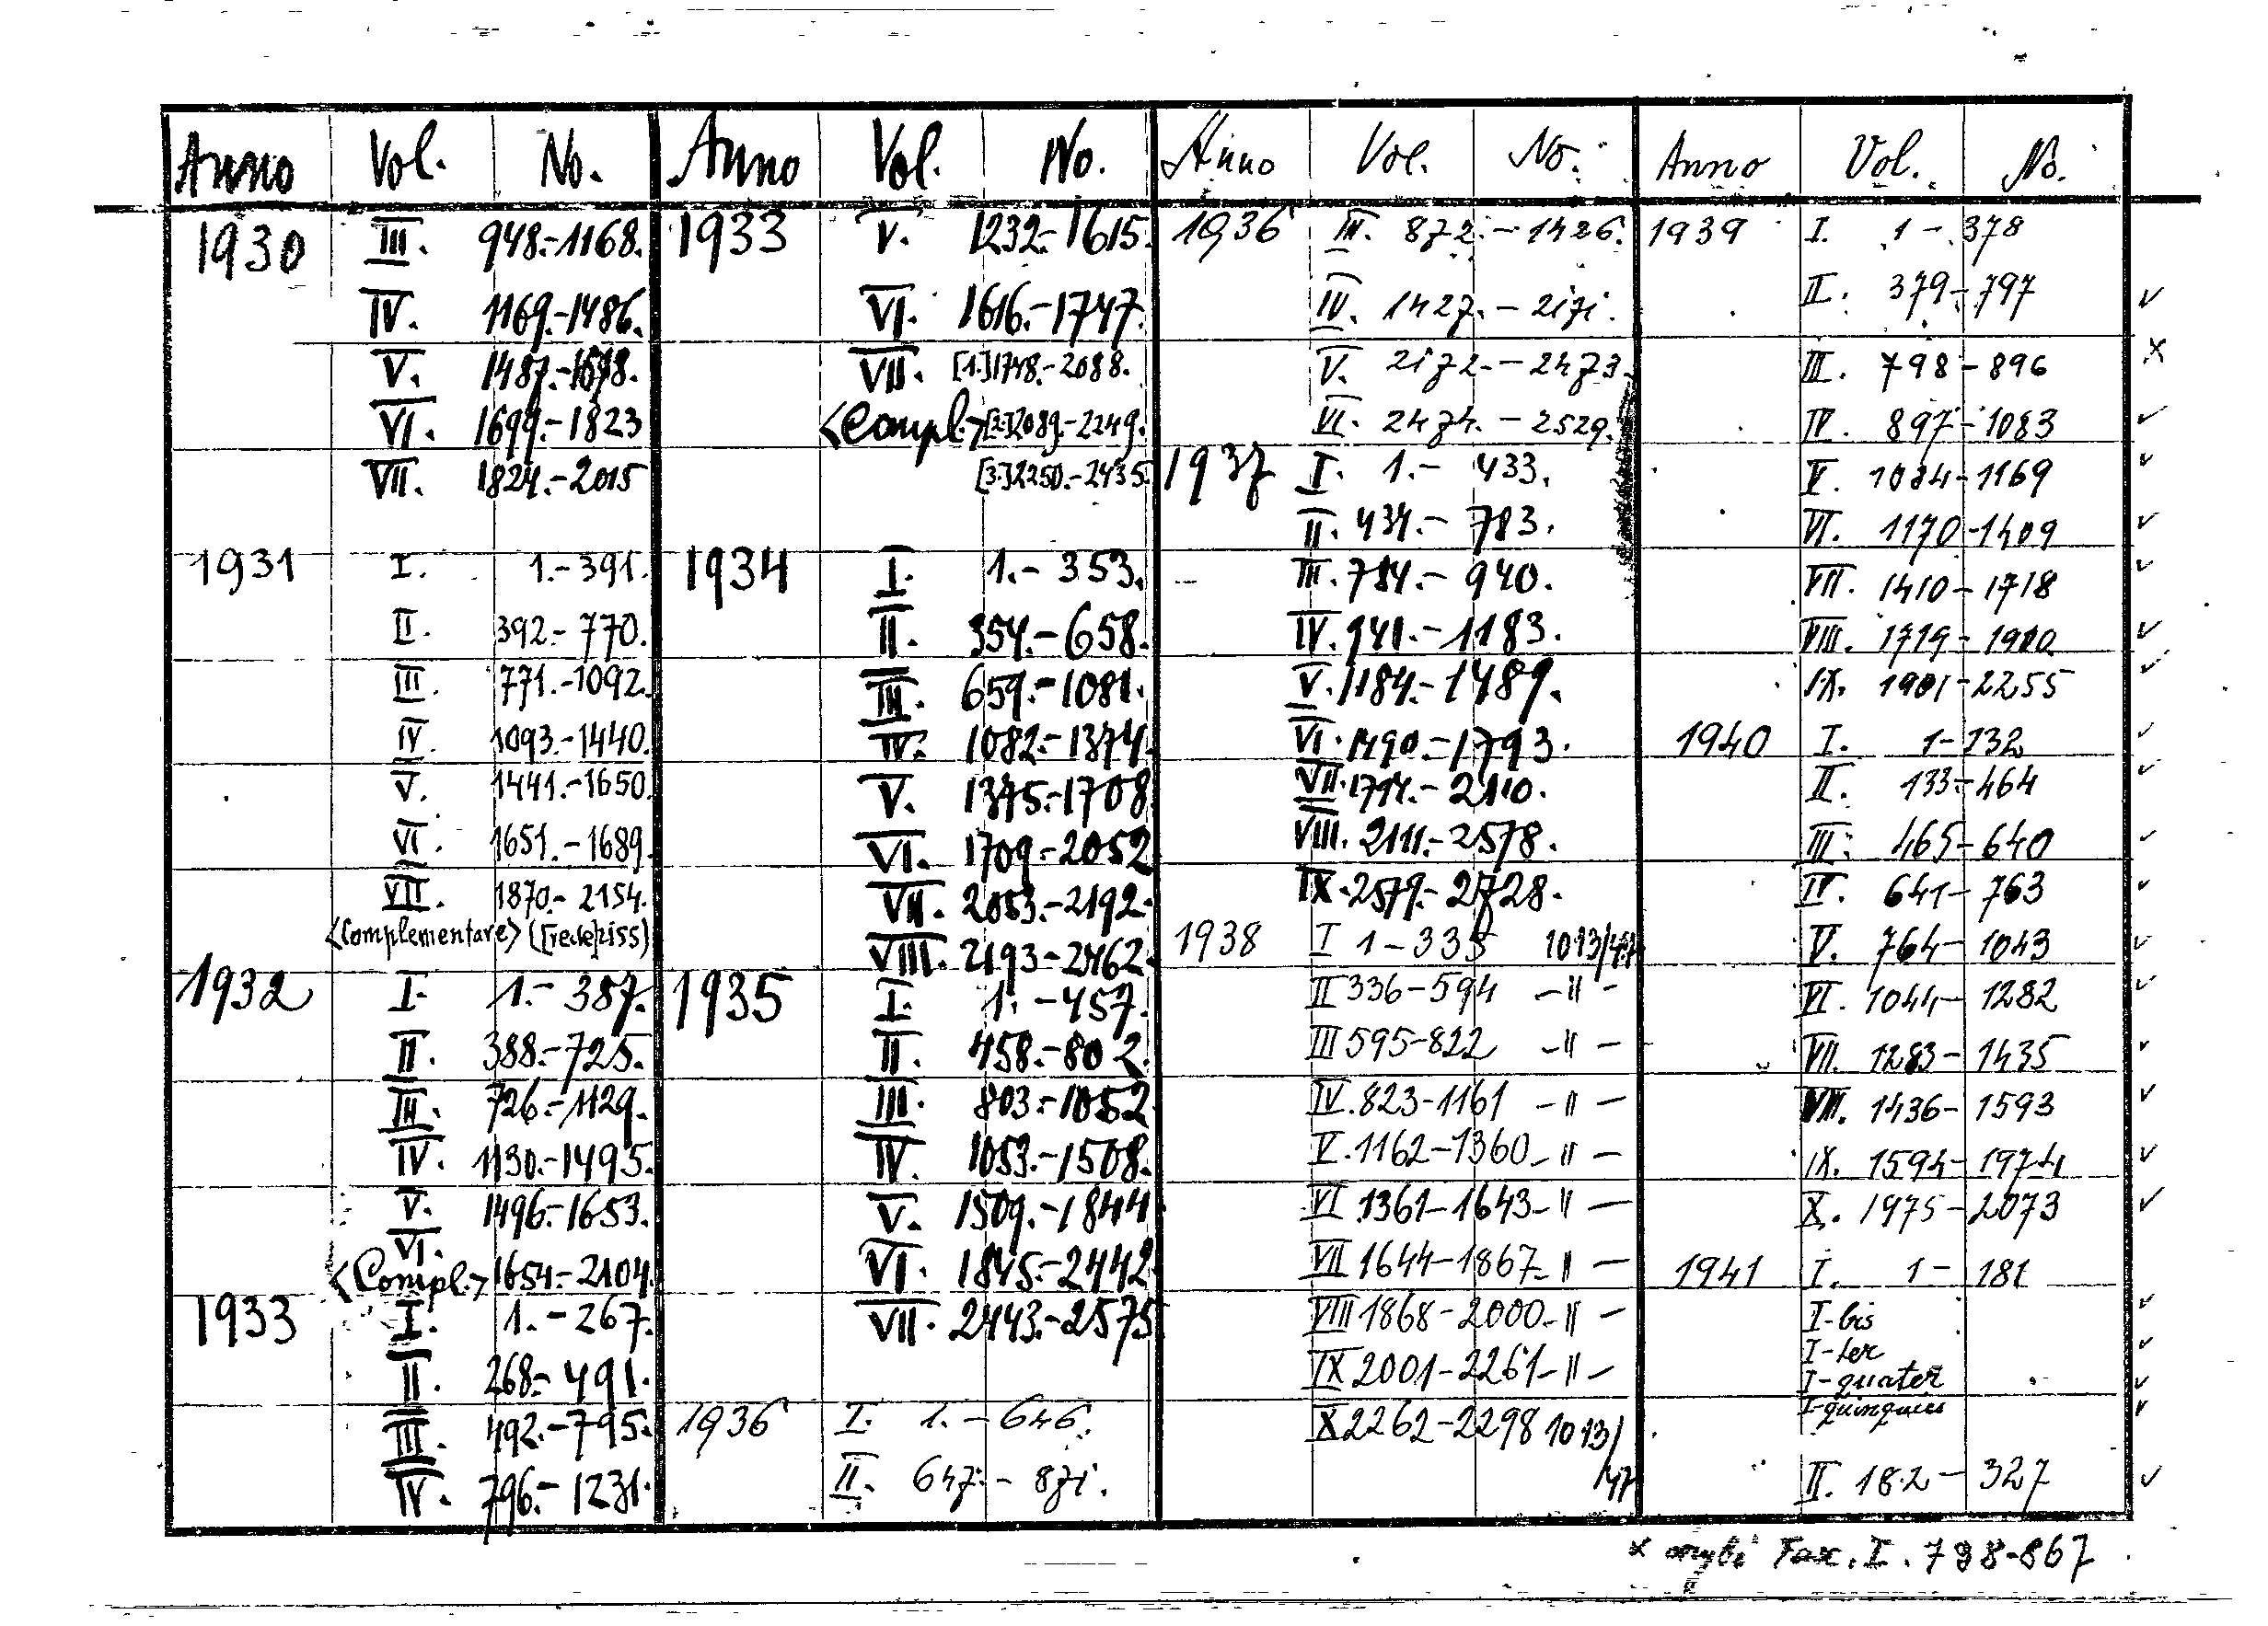 Anno Vol. No.
1930 III. 948.-1168.
IV. 1169.-1486.
V. 1487.-1698.
VI. 1699.-1823
VII. 1824.-2015
1931 I. 1.-391.
II. 392.-770.
III. 771.-1092.
IV. 1093.-1440.
V. 1441.-1650.
VI. 1651.-1689.
VII. 1870.-2154.
<Complementare>
1932 I. 1.-387.
II. 388.-725.
III. 726.-1129.
IV. 1130.-1495.
V. 1496.-1653.
VI.
<Compl.> 1654.-2104.
1933 I. 1.-267.
II. 268.-491.
III. 492.-795.
IV. 796.-1231.
Anno Vol. No.
1933 V. 1232.-1615.
VI. 1616.-1747.
VII. [1.]1748.-2088.
<Compl.> [2.]2089.-2249.
[3.]2250.-2435.
1934 I. 1.-353.
II. 354.-658.
III. 659.-1081.
IV. 1082.-1374.
V. 1375.-1708
VI. 1709.-2052
VII. 2053.-2192.
VIII. 2193-2462.
1935 I. 1.-457.
II. 458.-802.
III. 803.-1052
IV. 1053.-1508.
V. 1509.-1844
VI. 1845.-2442
VII. 2443.-2575
1936 I. 1.-646.
II. 647.-871.
Anno Vol. No.
1936 III. 872.-1426.
IV. 1427.-2171.
V. 2172.-2473.
VI. 2474.-2529.
1937 I. 1.-433.
II. 434.-783.
III. 784.-940.
IV. 941.-1183.
V. 1184.-1489.
VI. 1490.-1793.
VII. 1794.-2110.
VIII. 2111.-2578.
IX. 2579.-2728.
1938 I 1-335 1013/47
II 336-594 -"-
III 595-822 -"-
IV. 823-1161 -"-
V. 1162-1360 -"-
VI 1361-1643 -"-
VII 1644-1867 -"-
VIII 1868-2000 -"-
IX 2001-2261 -"-
X 2262-2298 1013/
/47
Anno Vol. No.
1939 I. 1-378
II. 379-797 ✓
III. 798-896 x
IV. 897-1083 ✓
V. 1084-1169 ✓
VI. 1170-1409 ✓
VII. 1410-1718 ✓
VIII. 1719-1900 ✓
IX. 1901-2255 ✓
1940 I. 1-132 ✓
II. 133-464 ✓
III. 465-640 ✓
IV. 641-763 ✓
V. 764-1043 ✓
VI. 1044-1282 ✓
VII. 1283-1435 ✓
VIII. 1436-1593 ✓
IX. 1594-1974 ✓
X. 1975-2073 ✓
1941 I. 1-181
I-bis ✓
I-ter ✓
I-quater ✓
I-quinquies ✓
II. 182-327 ✓
x Fasc. I. 798-867